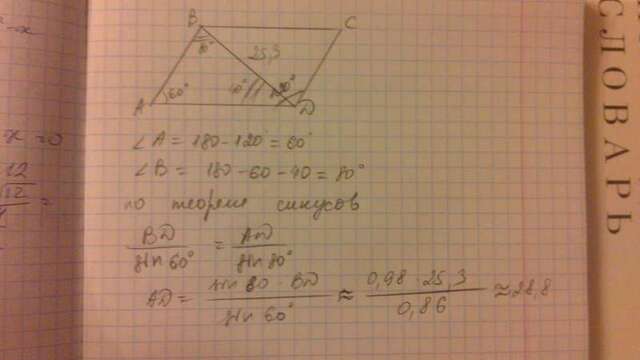 B
C
80°
25,3
60°
40°
120°
A
D
∠A = 180-120° = 60°
∠B = 180-60-40 = 80°
по теореме синусов
BD/sin 60° = AD/sin 80°
AD = sin 80 · BD/sin 60° ≈ 0,98 · 25,3/0,86 ≈ 28,8
x = 0
12
СЛОВАРЬ